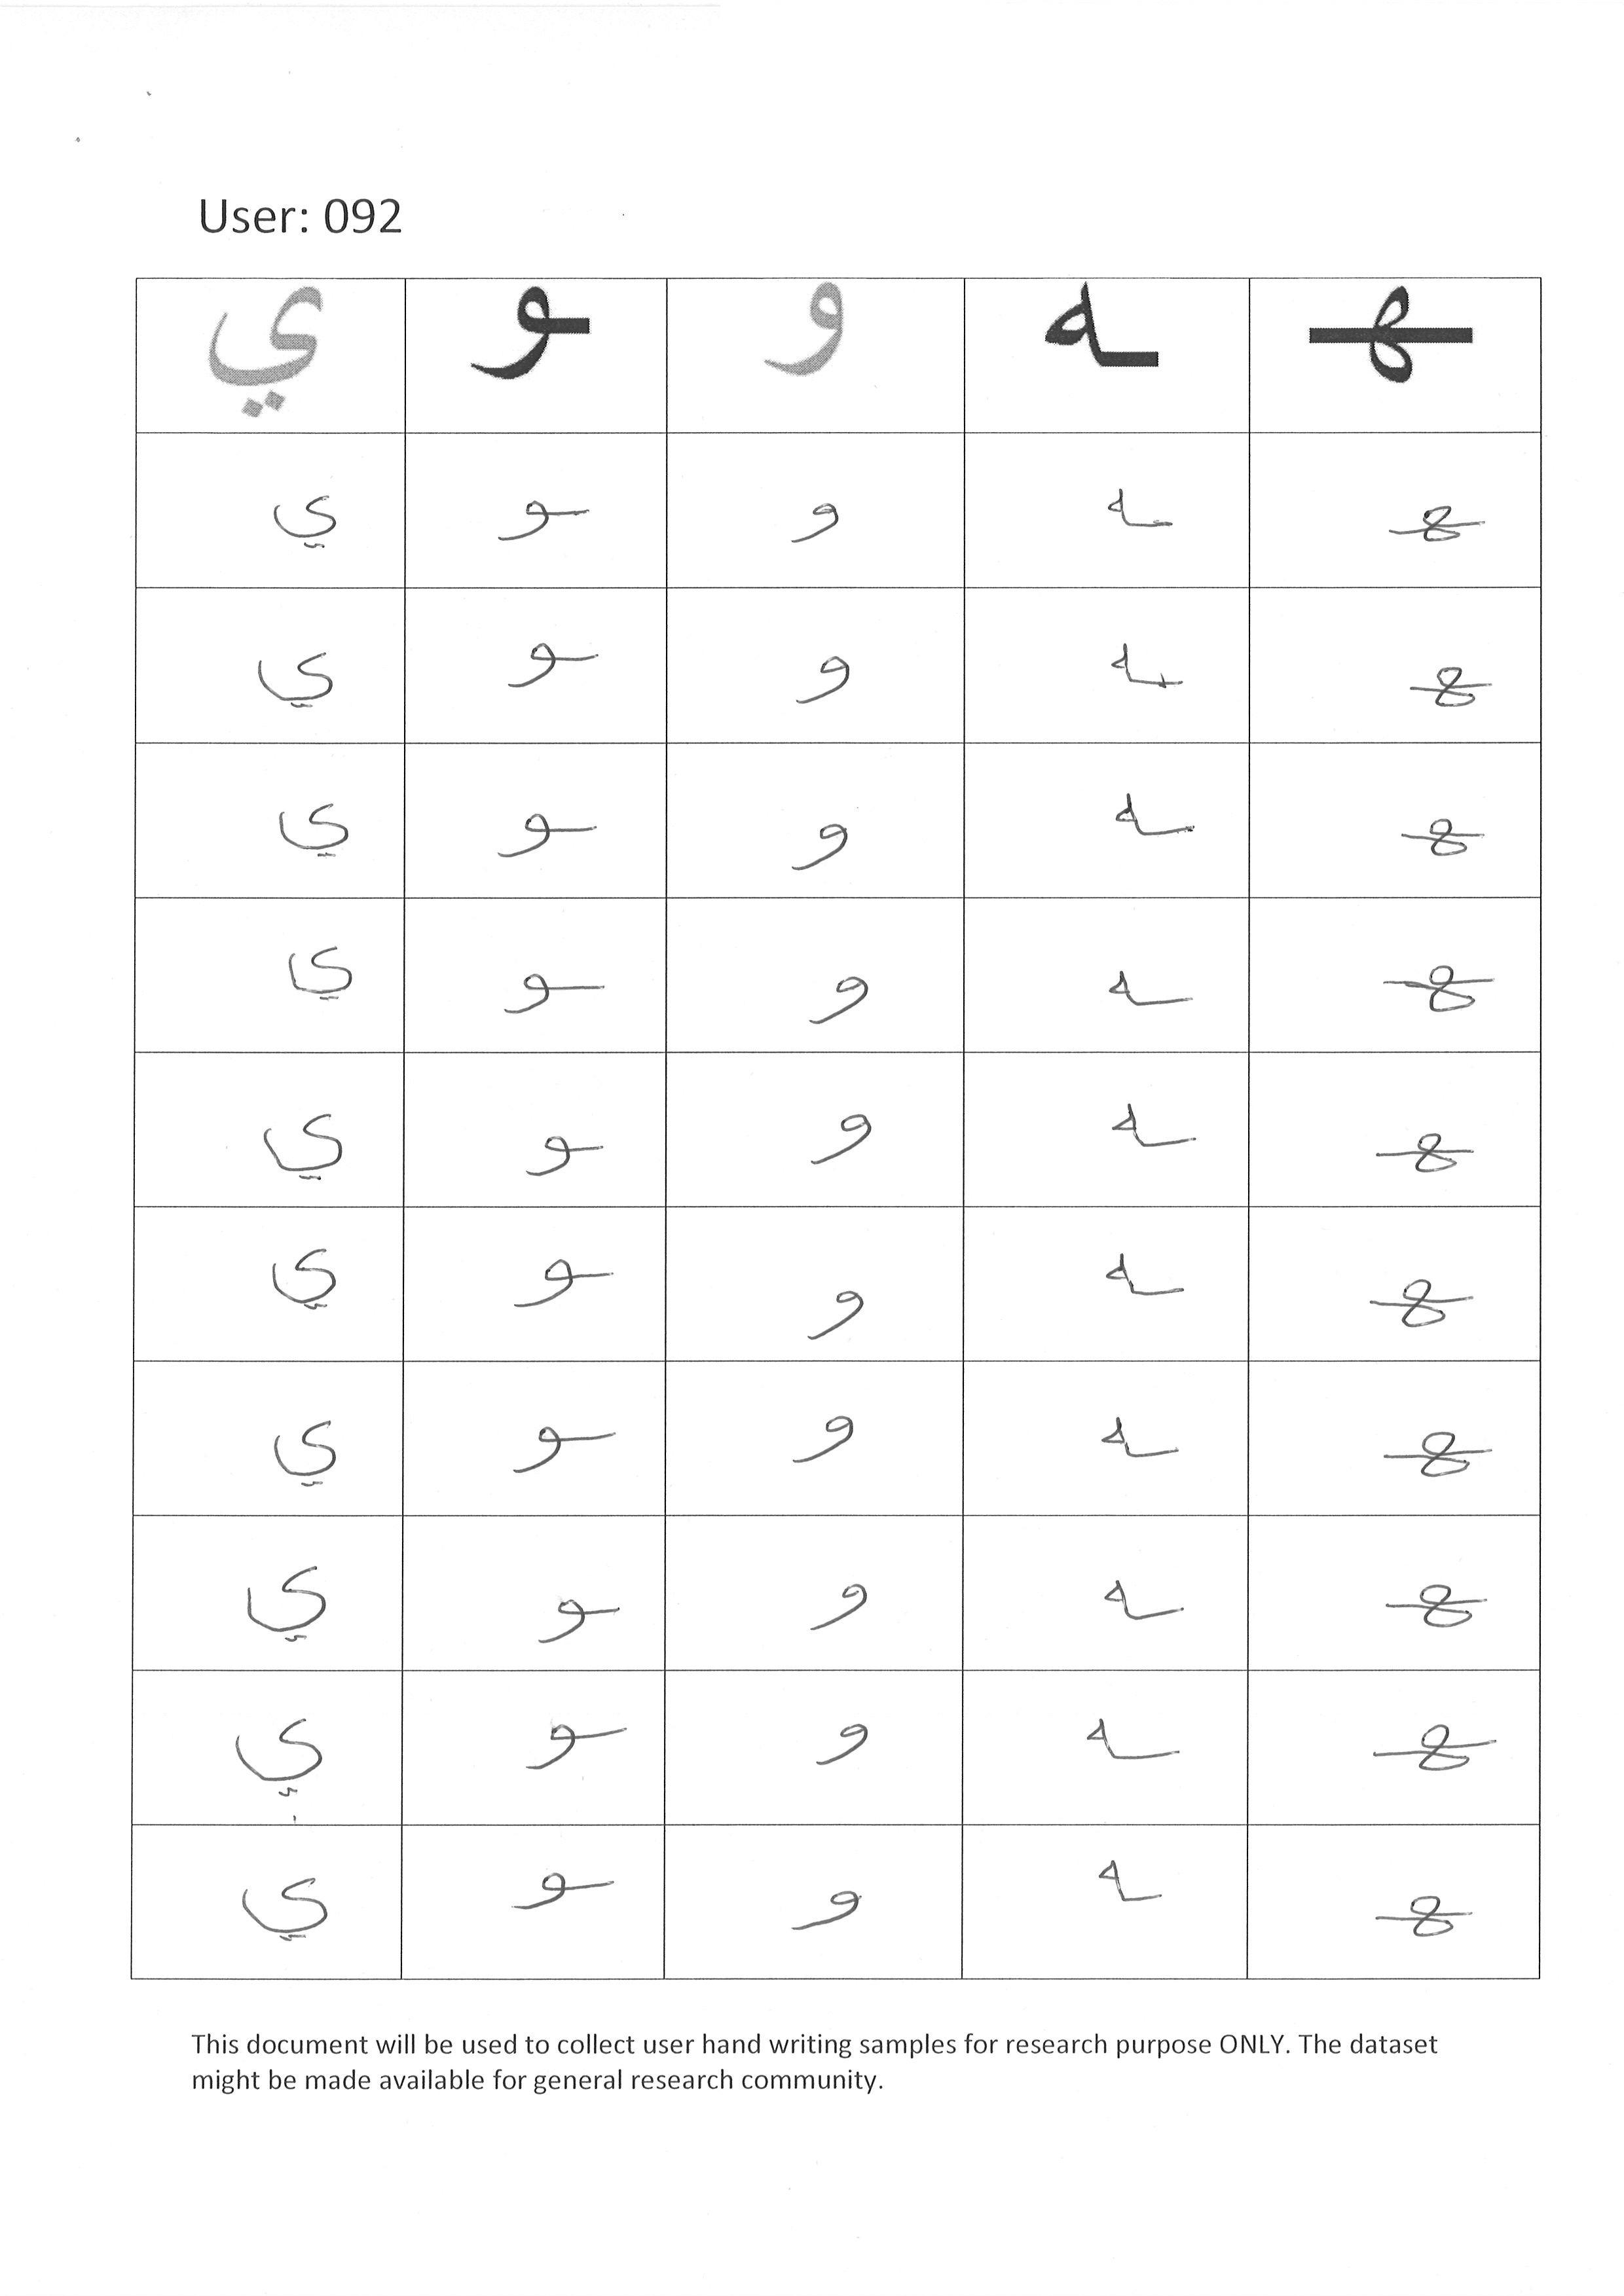 User: 092
ـهـ ـه و ـو ي
ـهـ ـه و ـو ي
ـهـ ـه و ـو ي
ـهـ ـه و ـو ي
ـهـ ـه و ـو ي
ـهـ ـه و ـو ي
ـهـ ـه و ـو ي
ـهـ ـه و ـو ي
ـهـ ـه و ـو ي
ـهـ ـه و ـو ي
ـهـ ـه و ـو ي
This document will be used to collect user hand writing samples for research purpose ONLY. The dataset
might be made available for general research community.